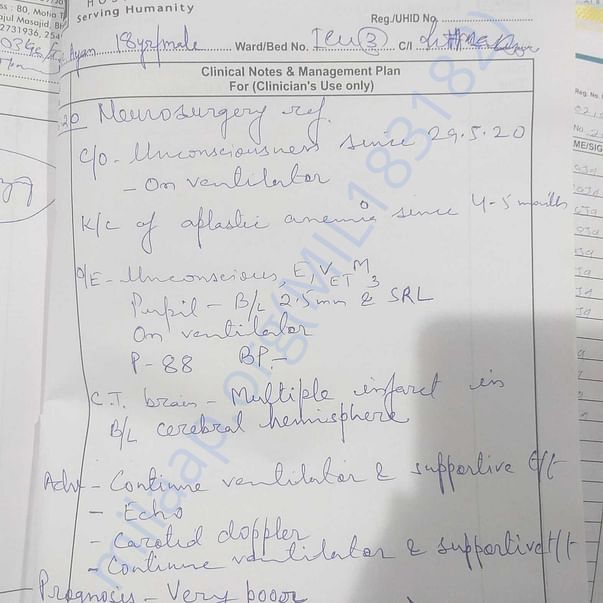 serving Humanity
ss : 80, Motia T
ajul Masajid, Bh
2731936, 254
Reg./UHID No.
Ayan 18yr/male Ward/Bed No. ICU (3) C/I
Clinical Notes & Management Plan
For (Clinician's Use only)
20 Neurosurgery ref.
C/O - Unconsciousness since 29.5.20
- On ventilator
K/C of aplastic anemia since 4-5 months
O/E - Unconscious, E, VET M3
Pupil - B/L 2.5mm & SRL
On ventilator
P - 88 BP. -
C.T. brain - Multiple infarct in
B/L cerebral hemisphere
Adv - Continue ventilator & supportive t/t
- Echo
- Carotid doppler
- Continue ventilator & supportive t/t
- Prognosis - Very pooor
milaap.org(MIL183182)
Reg. No.
No.
ME/SIG